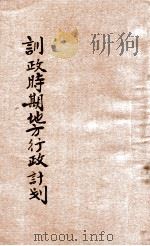 訓政時期地方行政計划
mtoou.info